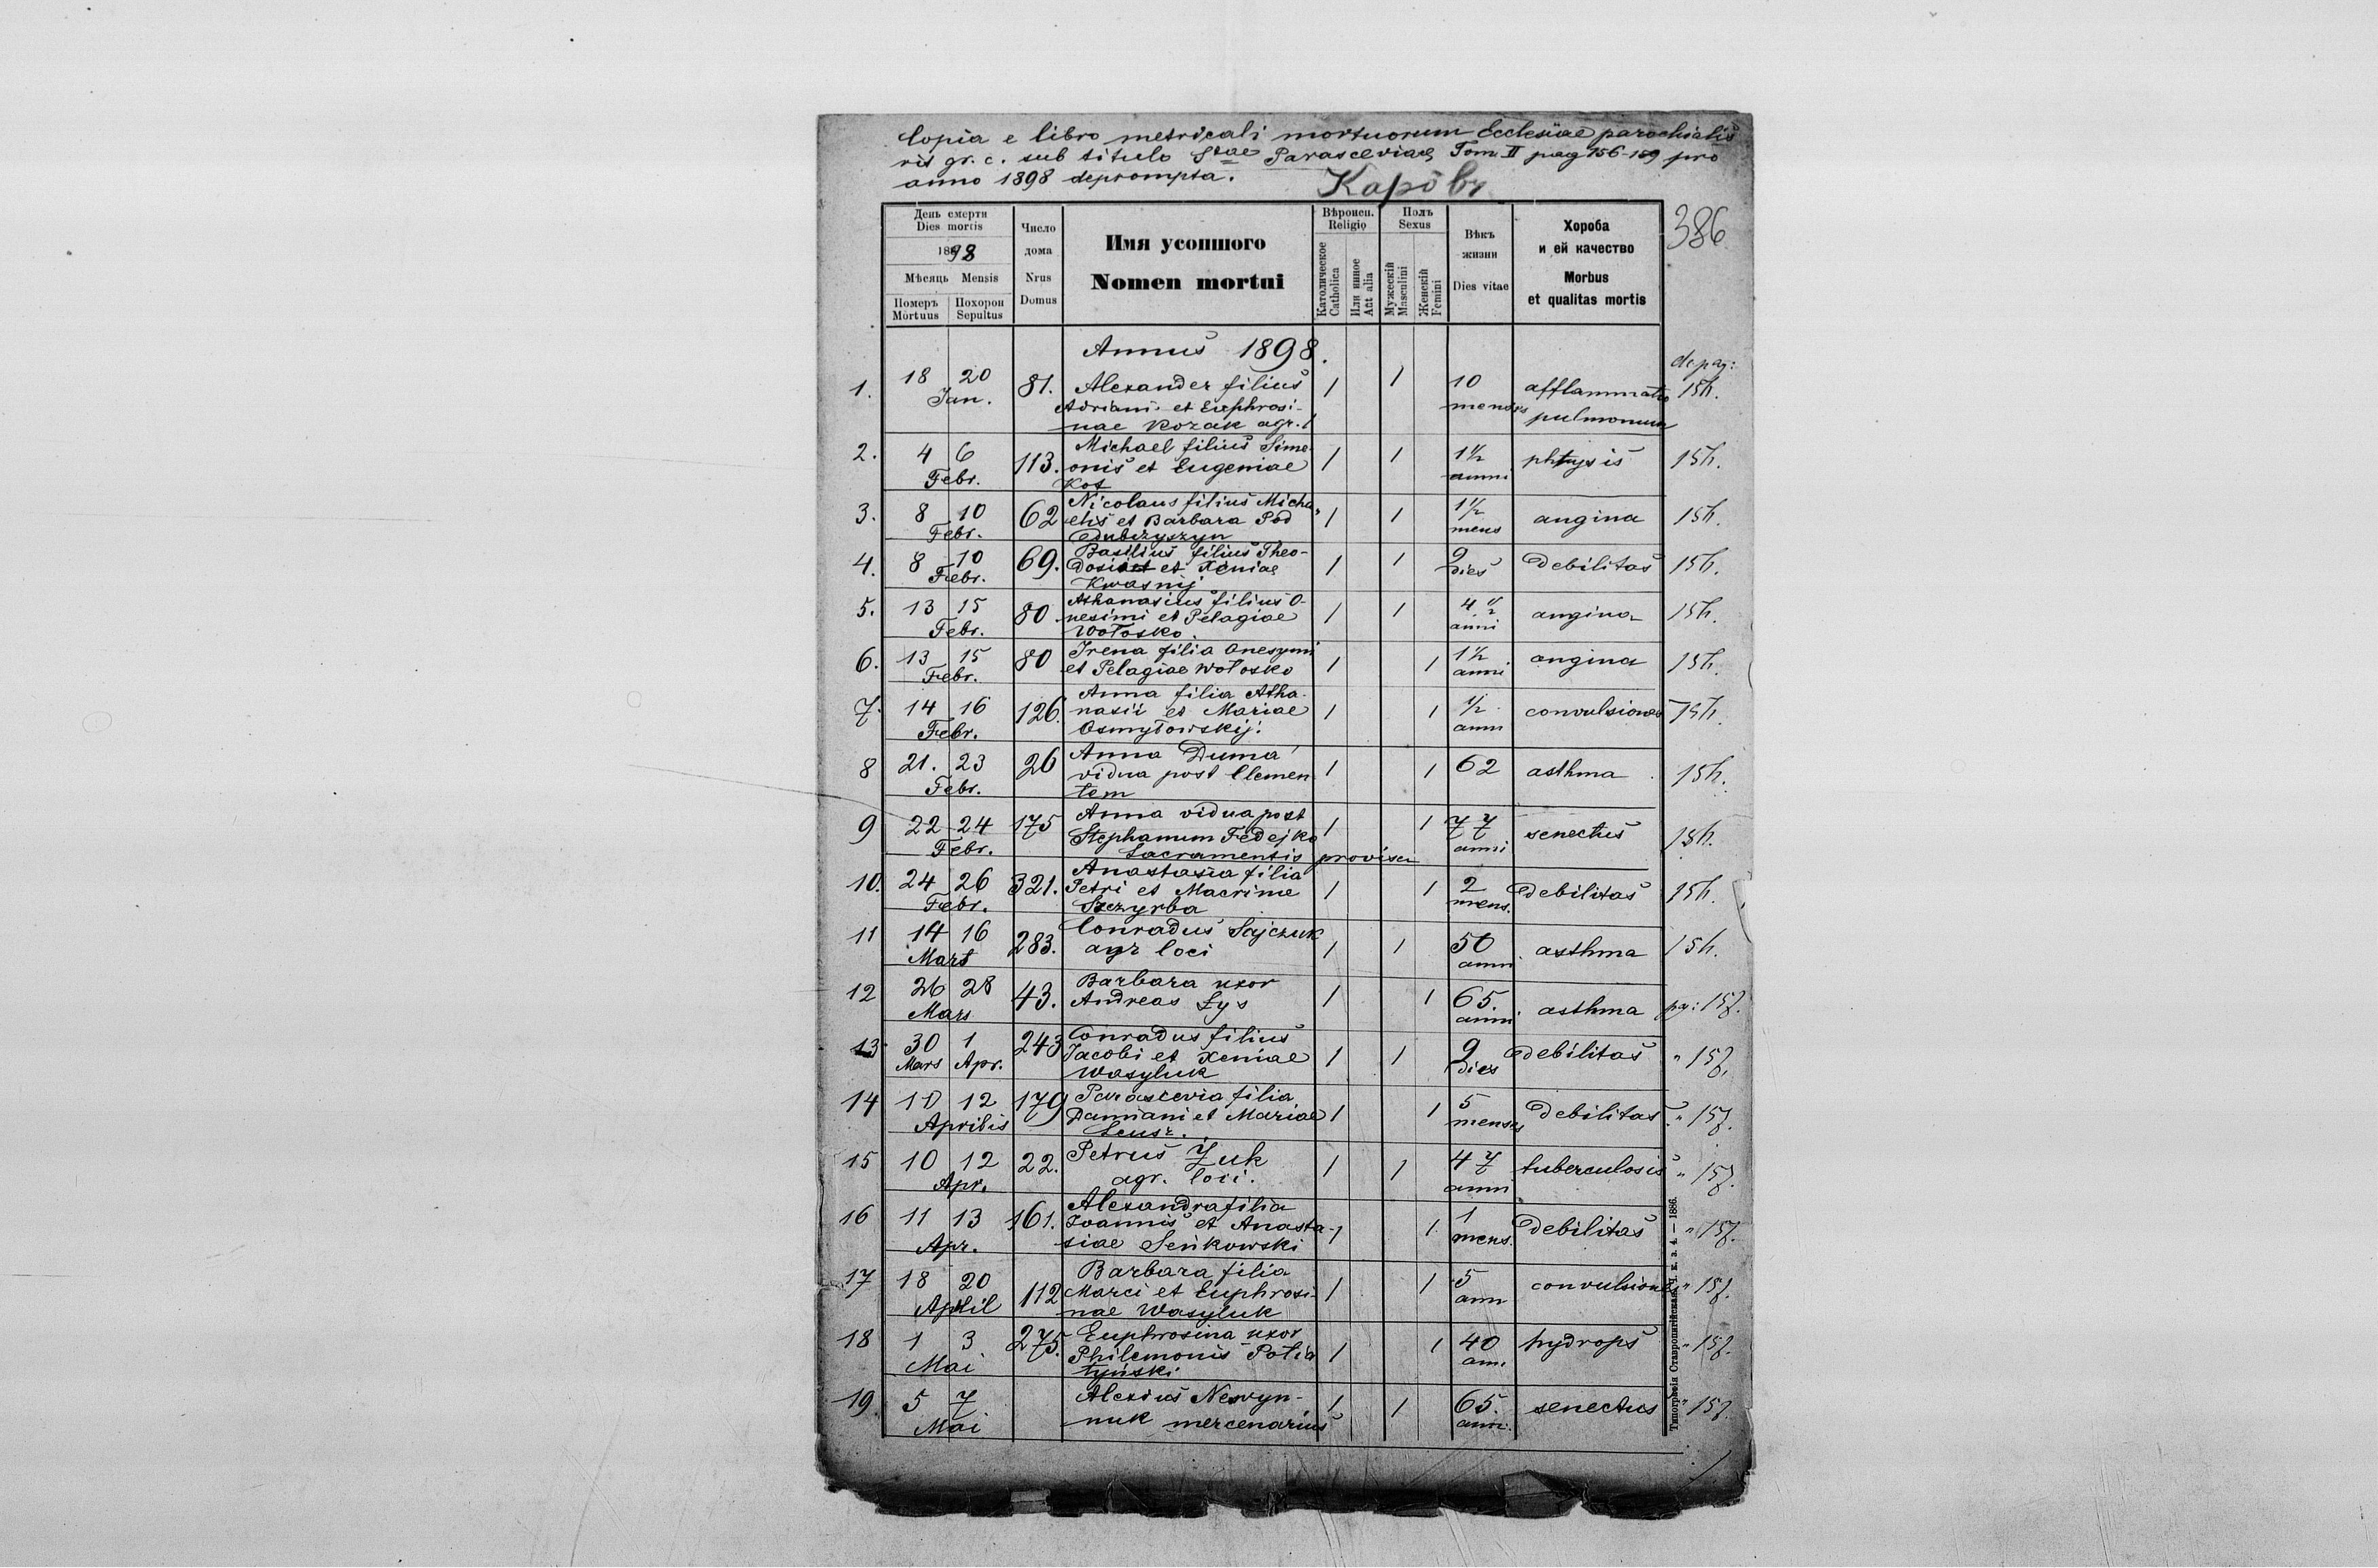 Copia e libro metricali mortuorum Ecclesiae parochialis
rit gr. c. sub titulo Stae Parasceviae, Tom. II pag 156-159 pro
anno 1898 deprompta.
Карôвъ
386
День смерти
Dies mortis
1898
Мѣсяць Mensis
Померъ Похорон
Mortuus Sepultus
Число
дома
Nrus
Domus
Имя усопшого
Nomen mortui
Вѣроисп.
Religio
Католическое
Catholica
Или инное
Aut alia
Полъ
Sexus
Мужескій
Masculini
Женскій
Femini
Вѣкъ
жизни
Dies vitae
Хороба
и ей качество
Morbus
et qualitas mortis
Annus 1898.
de pag:
1. 18 20 81. Alexander filius 1 1 10 afflammatio 156.
Jan. Adriani et Euphrosi- menses pulmonum
nae Kozak agr. l
2. 4 6 113. Michael filius Sime- 1 1 1½ phtysis 156.
Febr. onis et Eugeniae anni
Kot
3. 8 10 62 Nicolaus filius Micha- 1 1 1½ angina 156.
Febr. elis et Barbara Pod mens
Dubczyszyn
4. 8 10 69. Basilius filius Theo- 1 1 9 debilitas 156.
Febr. et Xeniae dies
Kwasnij
5. 13 15 80 Athanasius filius O- 1 1 4½ angina 156.
Febr. nesimi et Pelagiae anni
Wołosko.
6. 13 15 80 Irena filia Onesymi 1 1 1½ angina 156.
Febr. et Pelagiae Wołosko anni
7. 14 16 126. Anna filia Atha- 1 1 ½ convulsiones 156.
Febr. nasii et Mariae anni
Osmyłowskij.
8 21. 23 26 Anna Duma 1 1 62 asthma 156.
Febr. vidua post Clemen
tem
9 22 24 175 Anna vidua post 1 1 77 senectus 156.
Febr. Stephanum Fedejko anni
Sacramentis provisa
10. 24 26 321. Anastasia filia 1 1 2 debilitas 156.
Febr. Petri et Macrinae mens.
Szczyrba
11 14 16 283. Conradus Sajczuk 1 1 50 asthma 156.
Mart agr loci anni
12 26 28 43. Barbara uxor 1 1 65. asthma pg: 157.
Mars Andreas Łys anni.
13 30 1 243 Conradus filius 1 1 9 debilitas " 157.
Mars Apr. Jacobi et Xeniae dies
Wasyluk
14 10 12 179 Parascevia filia 1 1 5 debilitas " 157.
Aprilis Damiani et Mariae menses
15 10 12 22. Petrus Żuk 1 1 47 tuberculosis " 157.
Apr. agr. loci. anni
16 11 13 161. Alexandra filia 1 1 1 debilitas " 157.
Apr. Joannis et Anasta- mens.
siae Seńkowski
17 18 20 112 Barbara filia 1 1 5 convulsiones " 157.
April Marci et Euphrosi- ann
nae Wasyluk
18 1 3 275. Euphrosina uxor 1 1 40 hydrops " 157.
Mai Philemonis Potia ann.
tyński
19 5 7 Alexius 1 1 65. senectus " 157.
Mai mercenarius anni.
Типографія Ставропигійская. Ч. к. з. 4. — 1886.